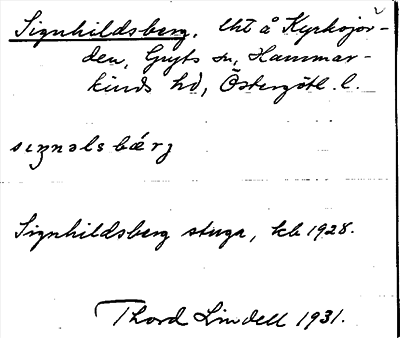 Signhildsberg. Lht å Kyrkojor-
den, Gryts sn, Hammar-
kinds hd, Östergötl. l.
sıŋnəls bærj
Signhildsberg stuga, kb 1928.
Thord Lindell 1931.